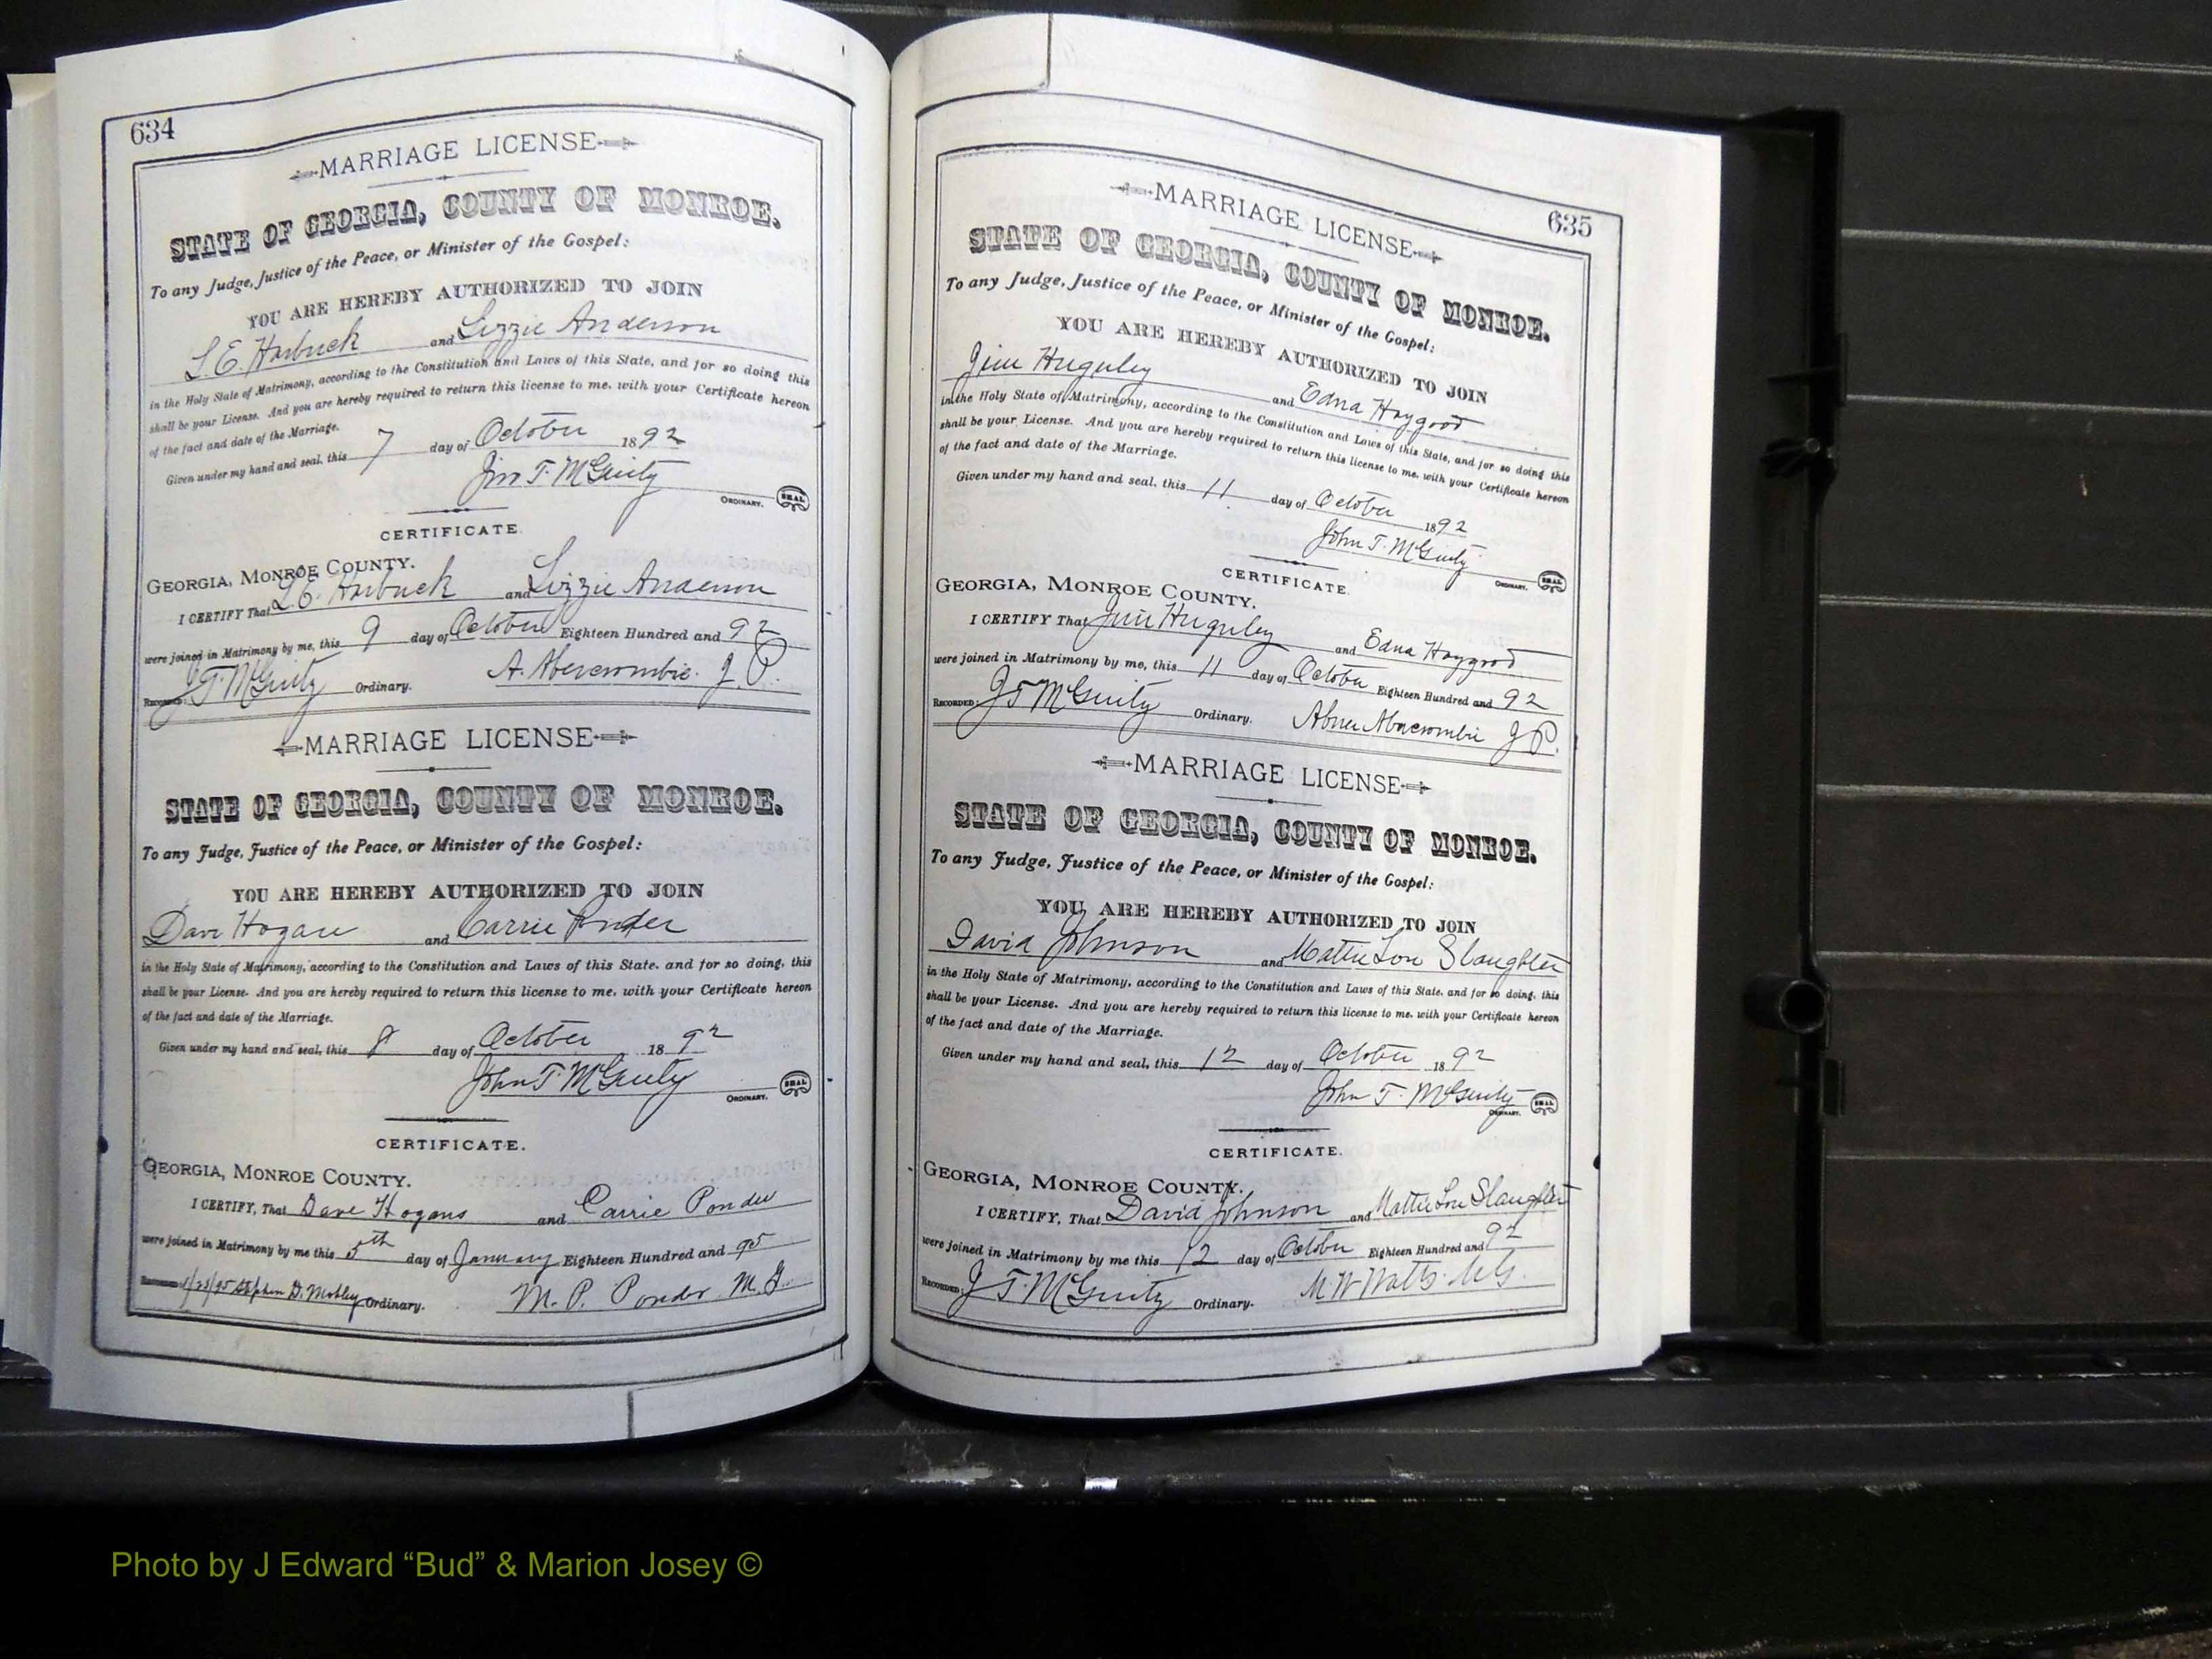 634
MARRIAGE LICENSE
STATE OF GEORGIA, COUNTY OF MONROE.
To any Judge, Justice of the Peace, or Minister of the Gospel:
YOU ARE HEREBY AUTHORIZED TO JOIN
L. E. Harbuck and Lizzie Anderson
in the Holy State of Matrimony, according to the Constitution and Laws of this State, and for so doing this
shall be your License. And you are hereby required to return this license to me, with your Certificate hereon
of the fact and date of the Marriage.
Given under my hand and seal, this 7 day of October 1892
Jno T. McGinty
ORDINARY. SEAL
CERTIFICATE.
GEORGIA, MONROE COUNTY.
I CERTIFY That L. E. Harbuck and Lizzie Anderson
were joined in Matrimony by me, this 9 day of October Eighteen Hundred and 92
RECORDED: J T. McGinty Ordinary. A. Abercrombie. J. P.
MARRIAGE LICENSE
STATE OF GEORGIA, COUNTY OF MONROE.
To any Judge, Justice of the Peace, or Minister of the Gospel:
YOU ARE HEREBY AUTHORIZED TO JOIN
Dave Hogan and Carrie Ponder
in the Holy State of Matrimony, according to the Constitution and Laws of this State, and for so doing, this
shall be your License. And you are hereby required to return this license to me, with your Certificate hereon
of the fact and date of the Marriage.
Given under my hand and seal, this 8 day of October 1892
John T. McGinty
ORDINARY. SEAL
CERTIFICATE.
GEORGIA, MONROE COUNTY.
I CERTIFY, That Dave Hogans and Carrie Ponder
were joined in Matrimony by me this 5th day of January Eighteen Hundred and 95
RECORDED Stephen D. Mobley Ordinary. M. P. Ponder M. G.
635
MARRIAGE LICENSE
STATE OF GEORGIA, COUNTY OF MONROE.
To any Judge, Justice of the Peace, or Minister of the Gospel:
YOU ARE HEREBY AUTHORIZED TO JOIN
Jim Huguley and Edna Haygood
in the Holy State of Matrimony, according to the Constitution and Laws of this State, and for so doing this
shall be your License. And you are hereby required to return this license to me, with your Certificate hereon
of the fact and date of the Marriage.
Given under my hand and seal, this 11 day of October 1892
John T. McGinty
ORDINARY. SEAL
CERTIFICATE.
GEORGIA, MONROE COUNTY.
I CERTIFY That Jim Huguley and Edna Haygood
were joined in Matrimony by me, this 11 day of October Eighteen Hundred and 92
RECORDED: J T McGinty Ordinary. Abner Abercrombie J P.
MARRIAGE LICENSE
STATE OF GEORGIA, COUNTY OF MONROE.
To any Judge, Justice of the Peace, or Minister of the Gospel:
YOU ARE HEREBY AUTHORIZED TO JOIN
David Johnson and Mattie Lou Slaughter
in the Holy State of Matrimony, according to the Constitution and Laws of this State, and for so doing, this
shall be your License. And you are hereby required to return this license to me, with your Certificate hereon
of the fact and date of the Marriage.
Given under my hand and seal, this 12 day of October 1892
John T. McGinty
ORDINARY. SEAL
CERTIFICATE.
GEORGIA, MONROE COUNTY.
I CERTIFY, That David Johnson and Mattie Lou Slaughter
were joined in Matrimony by me this 12 day of October Eighteen Hundred and 92
RECORDED: J T. McGinty Ordinary. M. W Watts. M G.
Photo by J Edward “Bud” & Marion Josey ©